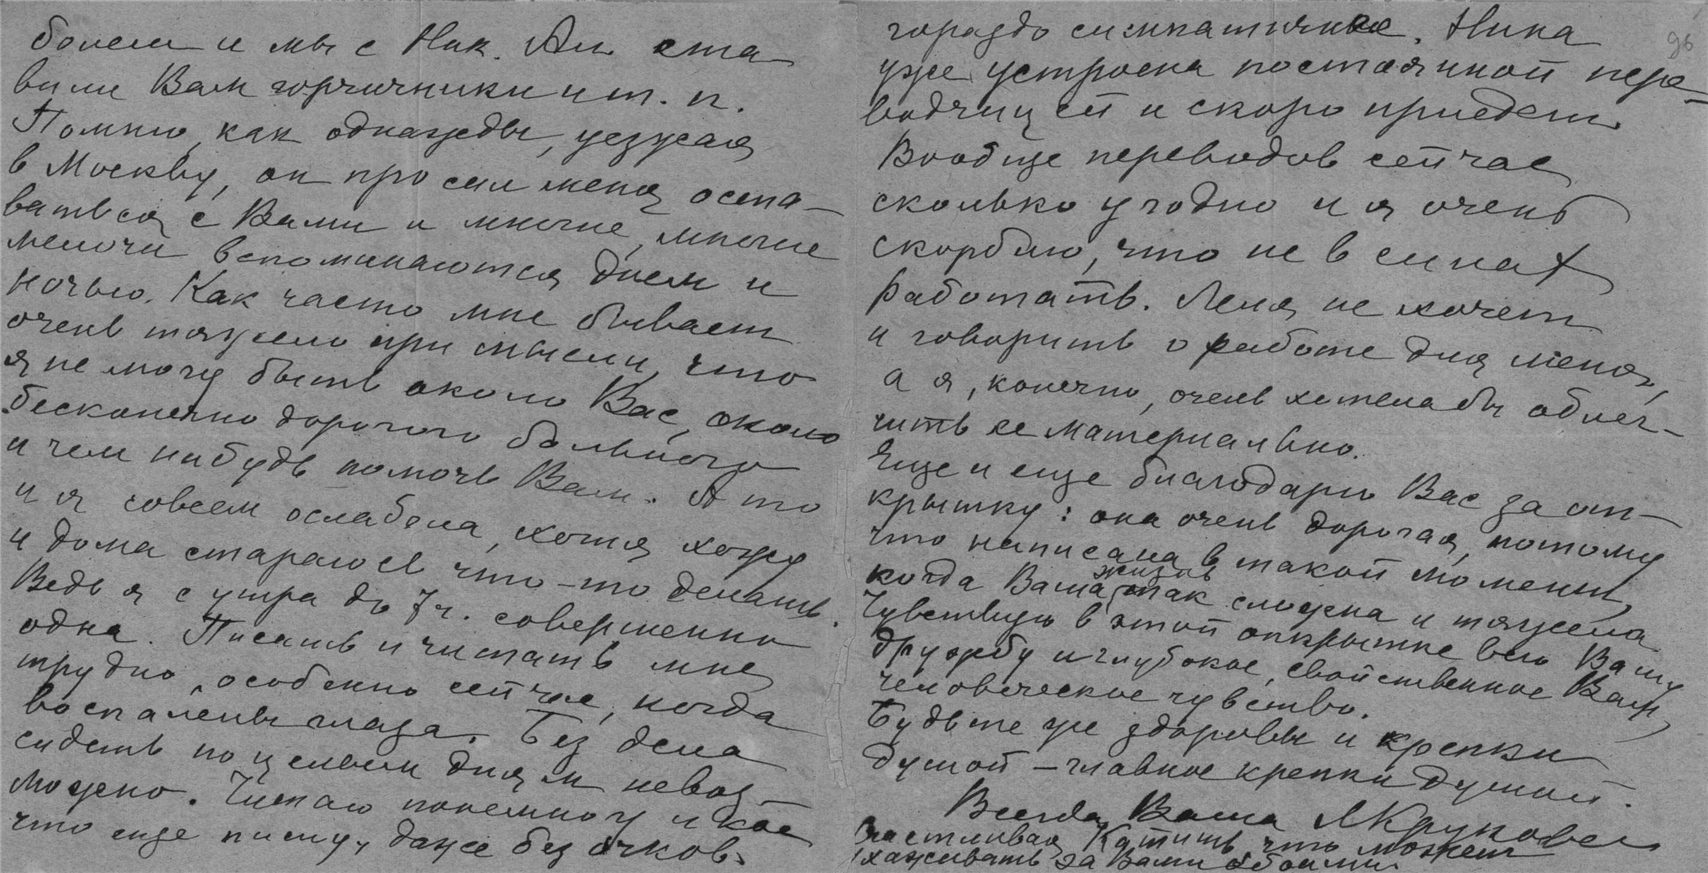 болели и мы с Ник. Ал. ста
вили Вам горчичники и т. п.
Помню, как однажды, уезжая
в Москву, он просил меня оста-
ваться с Вами и многие, многие
мелочи вспоминаются днем и
ночью. Как часто мне бывает
очень тяжело при мысли, что
я не могу быть около Вас, около
бесконечно дорогого больного
и чем нибудь помочь Вам. А то
и я совсем ослабела, хотя хожу
и дома стараюсь что-то делать.
Ведь я с утра до 7 ч. совершенно
одна. Писать и читать мне
трудно, особенно сейчас, когда
воспалены глаза. Без дела
сидеть по целым дням невоз-
можно. Читаю понемногу и кое
что еще пишу, даже без очков.
96
гораздо симпатичнее. Нина
уже устроена постоянной пере-
водчицей и скоро приедет.
Вообще переводов сейчас
сколько угодно и я очень
скорблю, что не в силах
работать. Леля не хочет
и говорить о работе для меня,
а я, конечно, очень хотела бы облег-
чить ее материально.
Еще и еще благодарю Вас за от-
крытку: она очень дорогая, потому
что написана в такой момент,
когда Ваша жизнь так сложна и тяжела
Чувствую в этой открытке всю Вашу
дружбу и глубокое, свойственное Вам,
человеческое чувство.
Будьте же здоровы и крепки
душой – главное крепки душой.
Всегда Ваша
Счастливая что может
ухаживать за Вами обоими.